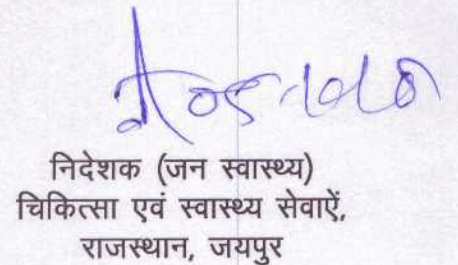 निदेशक (जन स्वास्थ्य)
चिकित्सा एवं स्वास्थ्य सेवाऐं,
राजस्थान, जयपुर